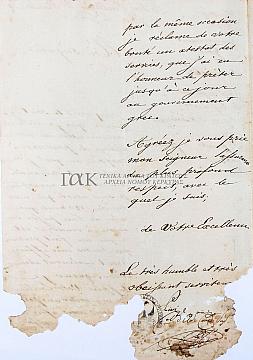 par la même occasion
je réclame de votre
bonté un attestat des
services, que j'ai eu
l'honneur de prêter
jusqu'à ce jour
au gouvernement
grec.
Agréez je vous prie
mon seigneur l'assurance
du plus profond
ΓΑΚ ΓΕΝΙΚΑ ΑΡΧΕΙΑ ΤΟΥ ΚΡΑΤΟΥΣ
ΑΡΧΕΙΑ ΝΟΜΟΥ ΚΕΡΚΥΡΑΣ
respect, avec le
quel je suis.
de Votre Excellence
Le très humble et très
obeissant serviteur